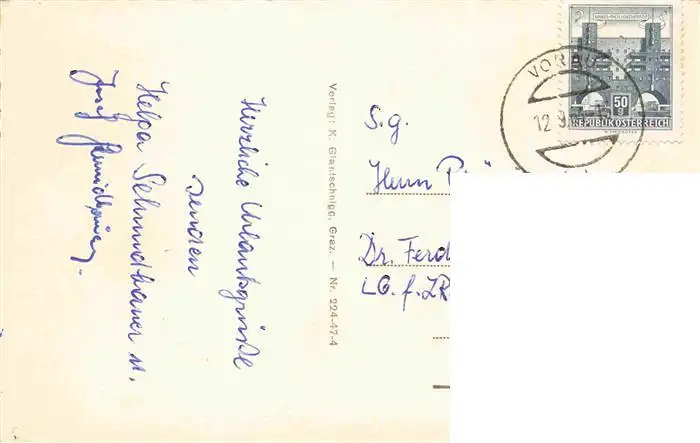 Herzliche Urlaubsgrüße
senden
Helga Schmidbauer u.
Josef Schmidbauer.
Verlag: K. Glantschnigg, Graz. — Nr. 224-47-4
S.g.
Herrn
Dr. Ferd
LG. f. ZR
VORAU
12.9.
50
g
REPUBLIK ÖSTERREICH